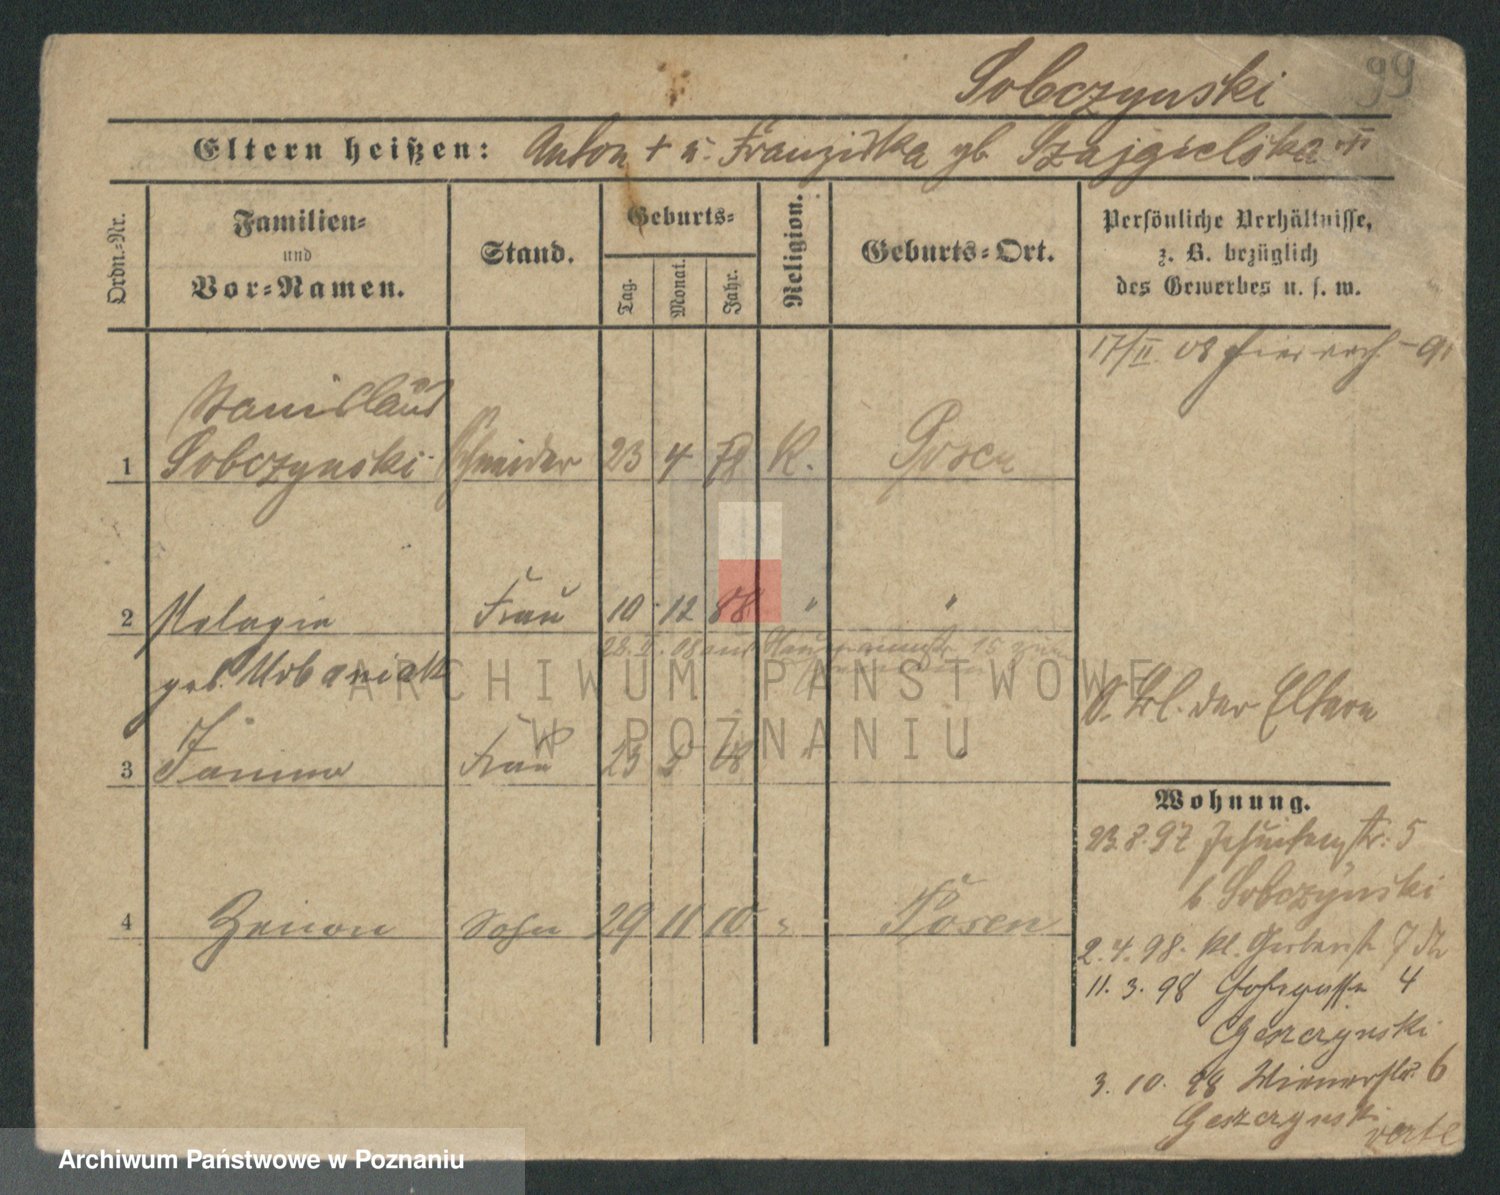 99
Sobczynski
Eltern heißen: Anton + u. Franziska gb. Szajgielska
Ordn.-Nr.
Familien-
und
Vor-Namen.
Stand.
Geburts-
Tag.
Monat.
Jahr.
Religion.
Geburts-Ort.
Persönliche Verhältnisse,
z. B. bezüglich
des Gewerbes u. s. w.
17/II 08
Stanislaus
1 Sobczynski Schneider 23 4 78 K. Posen
2 Pelagia Frau 10 12 88 " "
geb. Urbaniak
S. Bl. der Eltern
3 Janina 23 5 "
Wohnung.
23.8.97 Jesuitenstr. 5
b Sobczynski
4 Zenon Sohn 29 11 10 " Posen
2.4.98. Kl. Gerberstr 7
11.3.98 4
Geszczynski
3.10.98 Wienerstr. 6
Geszczynski
verte
ARCHIWUM PAŃSTWOWE
W POZNANIU
Archiwum Państwowe w Poznaniu